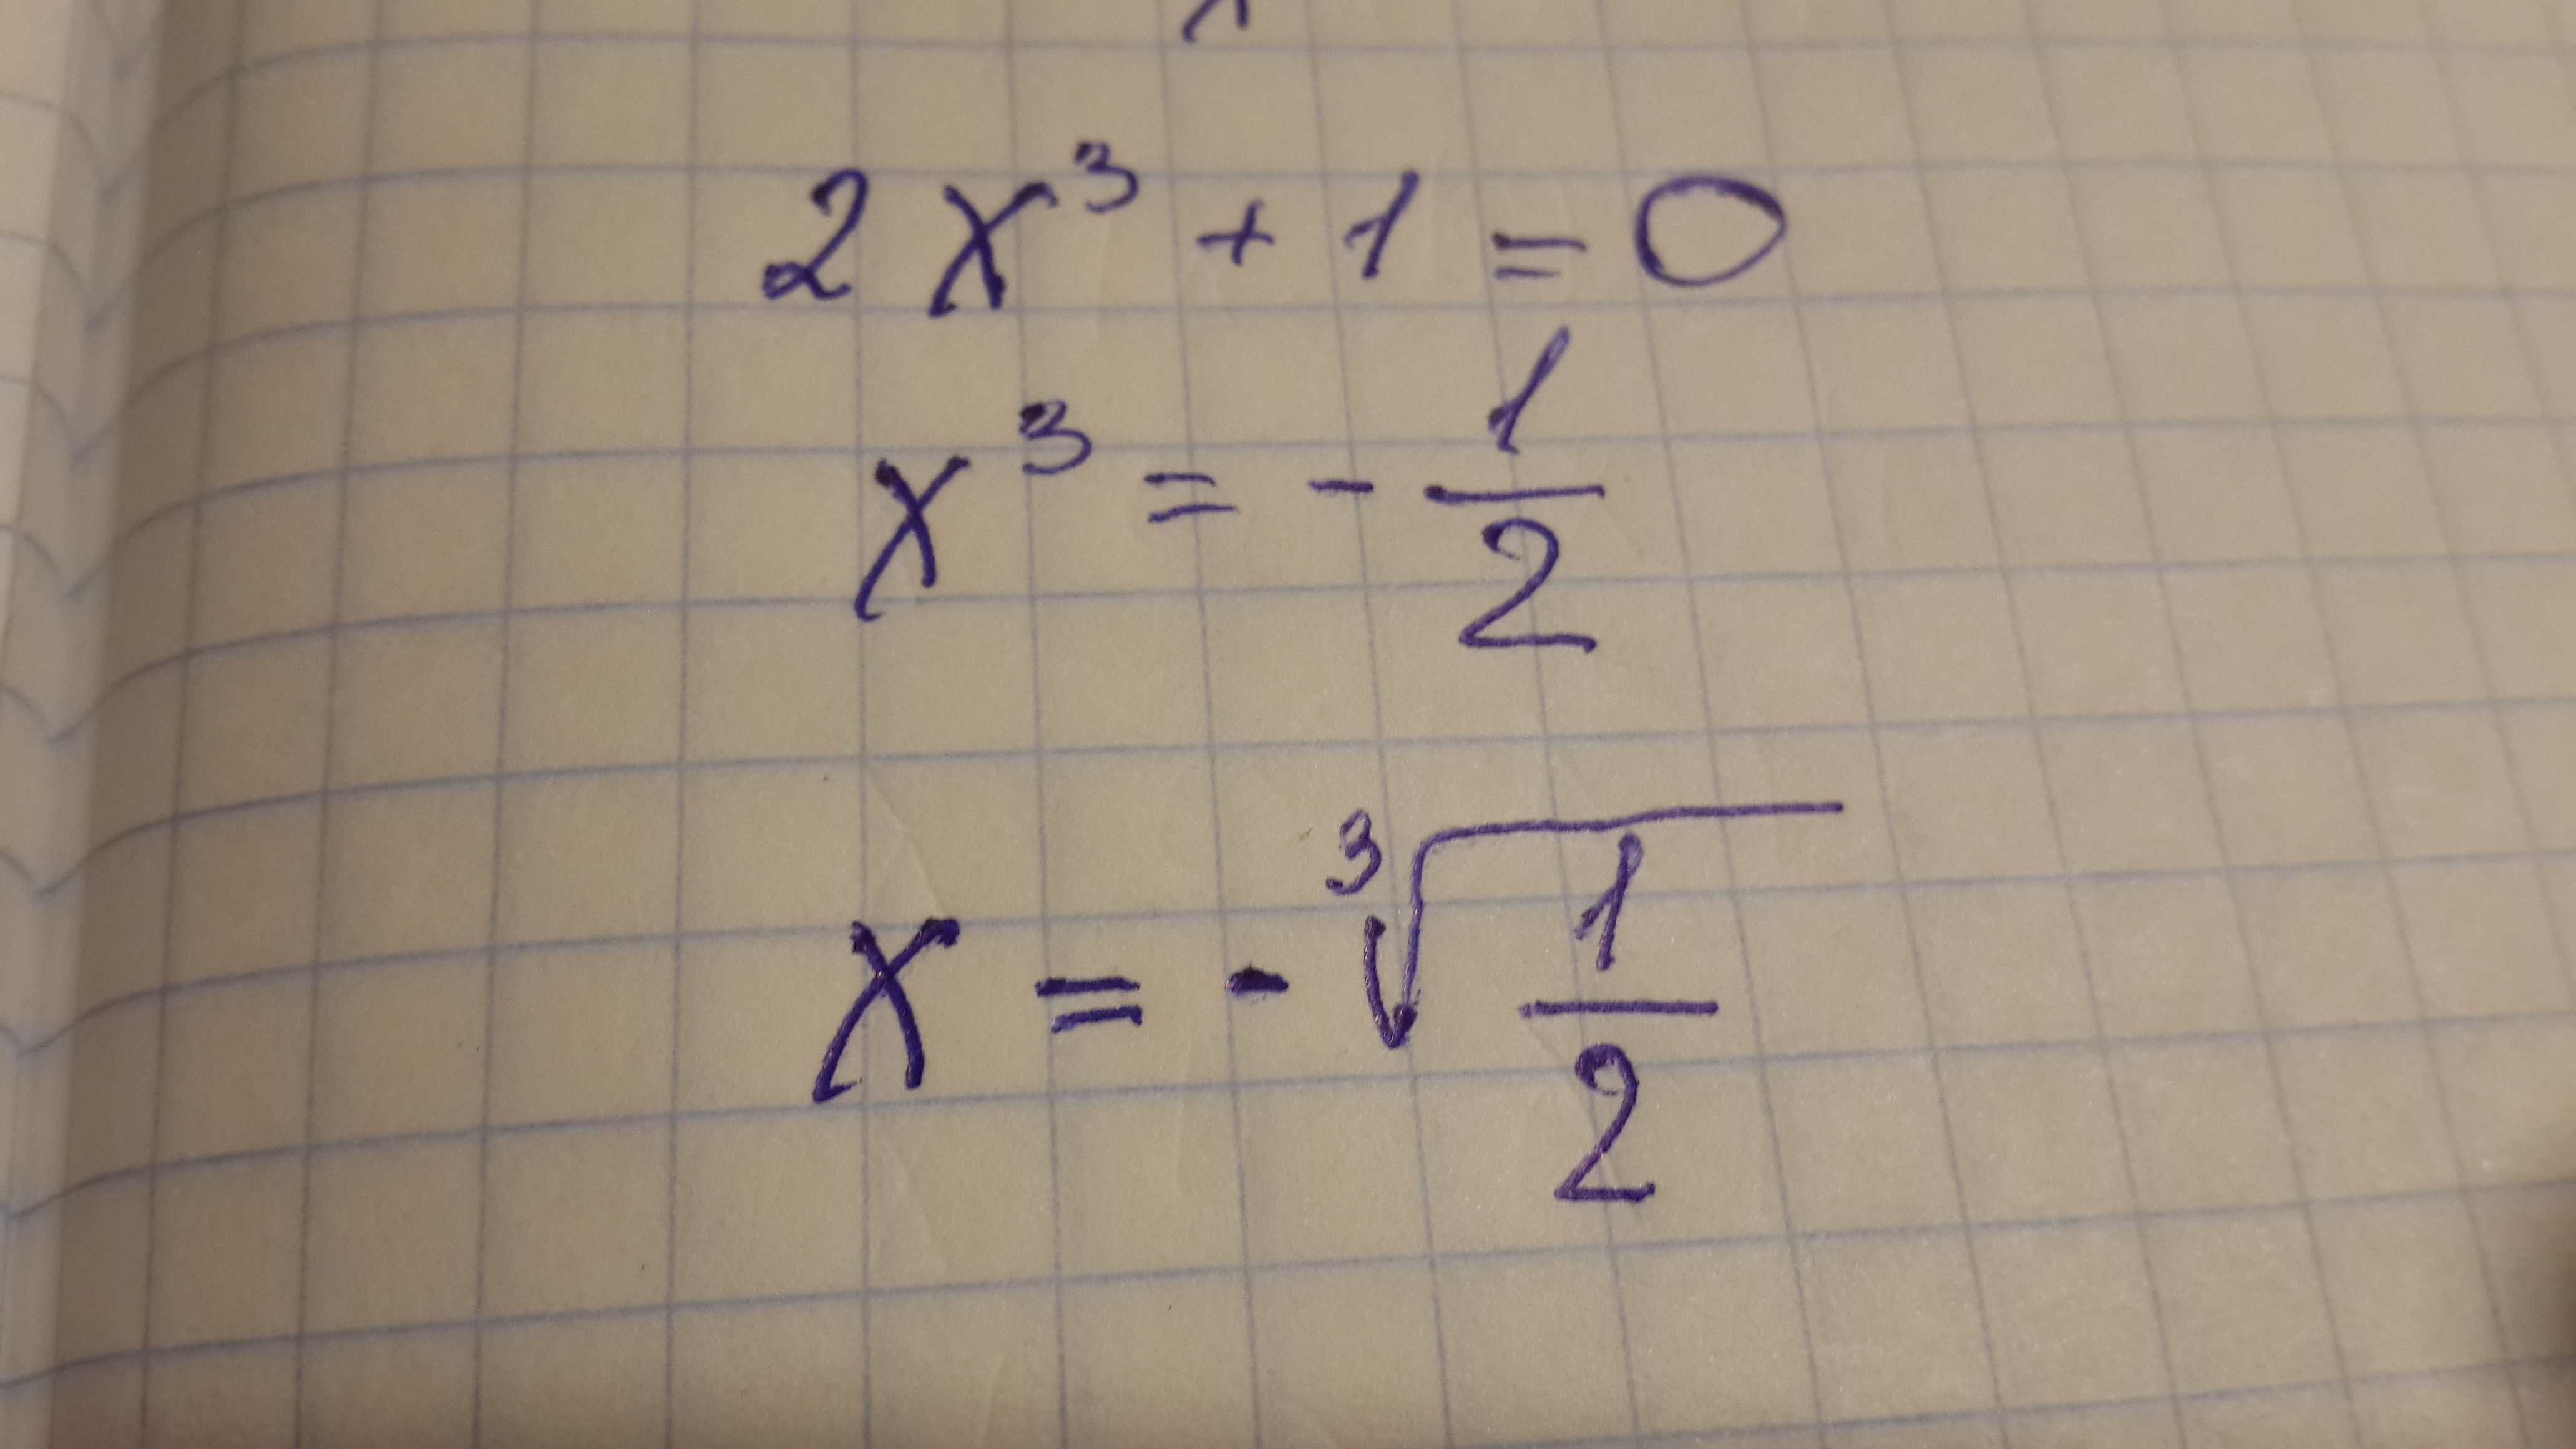 2x³ + 1 = 0
x³ = - 1/2
x = - ∛(1/2)